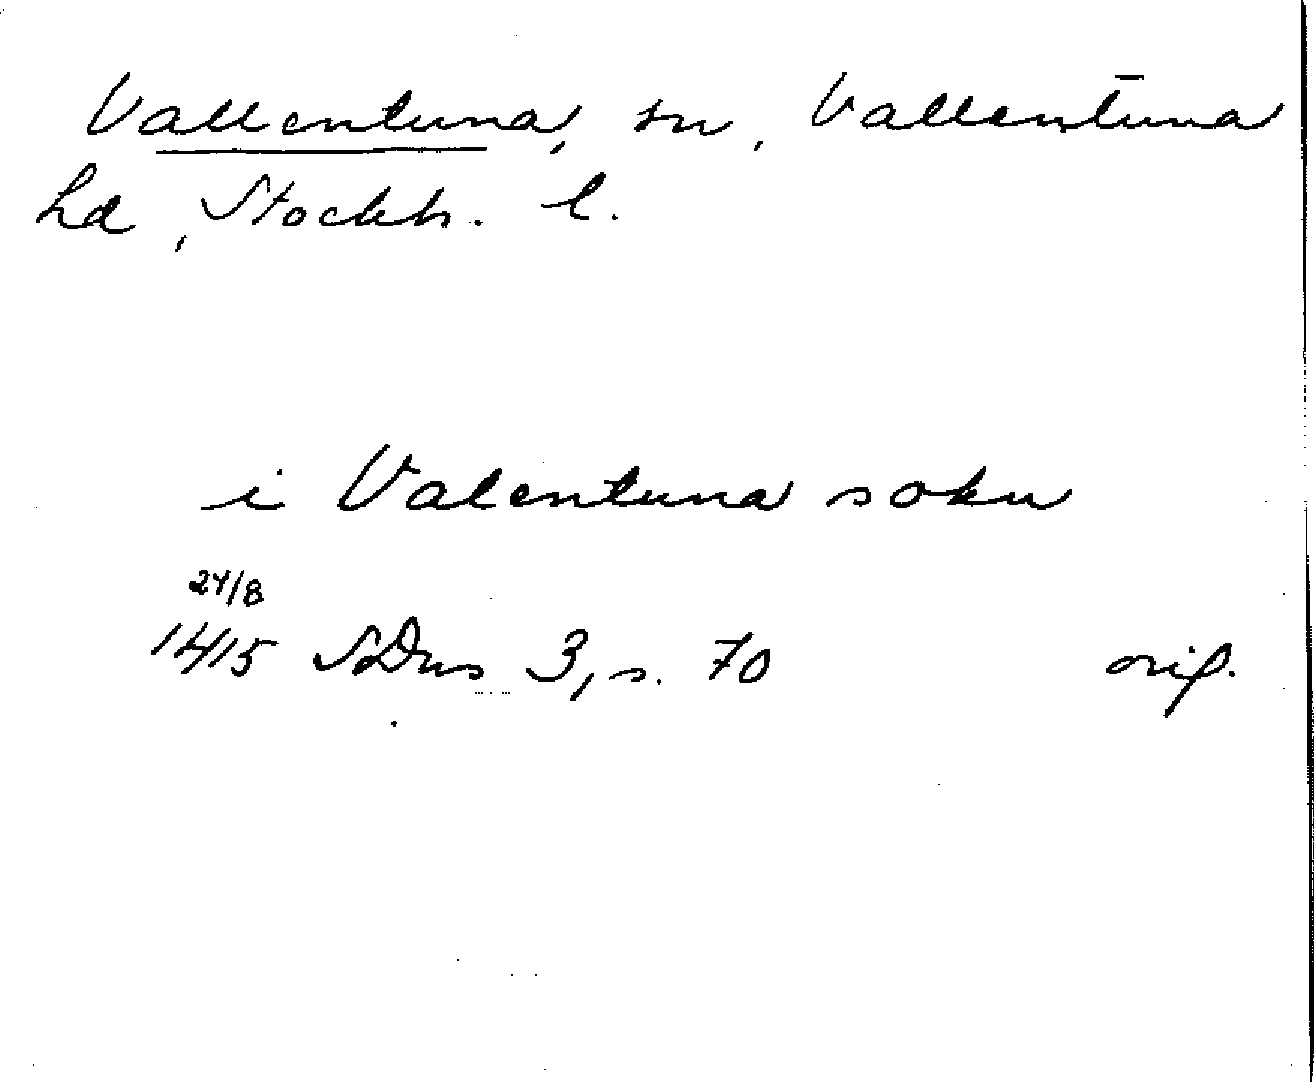 Vallentuna, sn, Vallentuna
hd, Stockh. l.
i Valentuna sokn
24/8
1415 SDns 3, s. 70 orig.